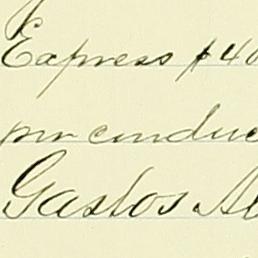 Express $40
por conduc
Gastos Al